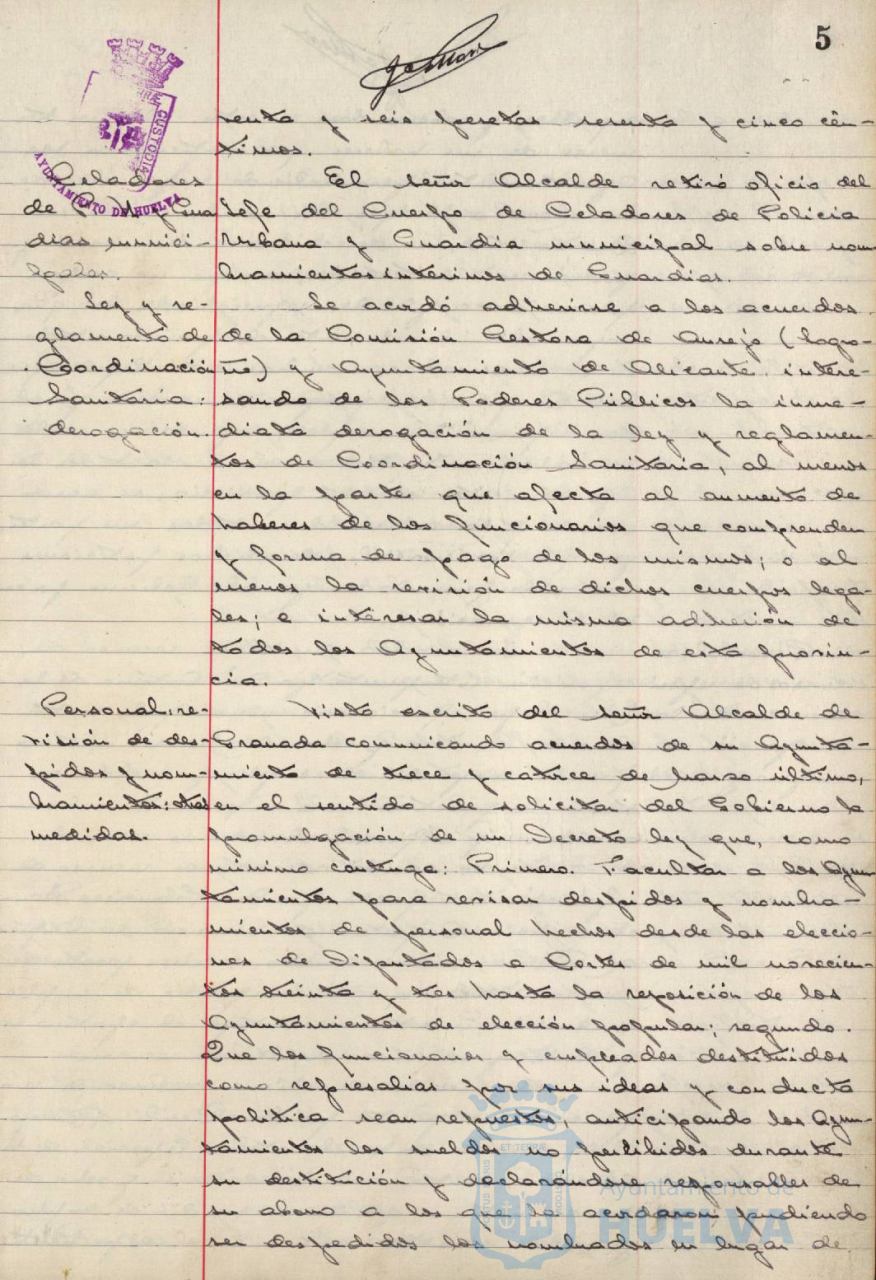 5
CUSTODIA
AYUNTAMIENTO DE HUELVA
renta y seis pesetas sesenta y cinco cén-
timos.
Celadores
de P. U. y Gua
dias munici-
pales.
El señor Alcalde retiró oficio del
Jefe del Cuerpo de Celadores de Policia
Urbana y Guardia municipal sobre nom
bramientos interinos de Guardias.
Ley y re-
glamento de
Coordinación
Sanitaria:
derogación.
Se acordó adherirse a los acuerdos
de la Comisión Gestora de Ausejo (Logro-
ño) y Ayuntamiento de Alicante intere-
sando de los Poderes Públicos la inme-
diata derogación de la ley y reglamen-
tos de Coordinación Sanitaria, al menos
en la parte que afecta al aumento de
haberes de los funcionarios que comprenden
y forma de pago de los mismos; o al
menos la revisión de dichos cuerpos lega-
les; e interesar la misma adhesión de
todos los Ayuntamientos de esta provin-
cia.
Personal: re-
visión de des-
pidos y nom-
bramientos: otras
medidas.
Visto escrito del señor Alcalde de
Granada comunicando acuerdos de su Ayunta-
miento de trece y catorce de marzo último,
en el sentido de solicitar del Gobierno la
promulgación de un Decreto ley que, como
mínimo contenga: Primero. Facultar a los Ayun
tamientos para revisar despidos y nombra-
mientos de personal hechos desde las eleccio-
nes de Diputados a Cortes de mil novecien-
tos treinta y tres hasta la reposición de los
Ayuntamientos de elección popular; segundo.
Que los funcionarios y empleados destituidos
como represalias por sus ideas y conducta
politica sean repuestos, anticipando los Ayun-
tamientos los sueldos no percibidos durante
su destitución y declarándose responsables de
su abono a los que la acordaron pudiendo
ser despedidos los nombrados en lugar de
Ayuntamiento de
HUELVA